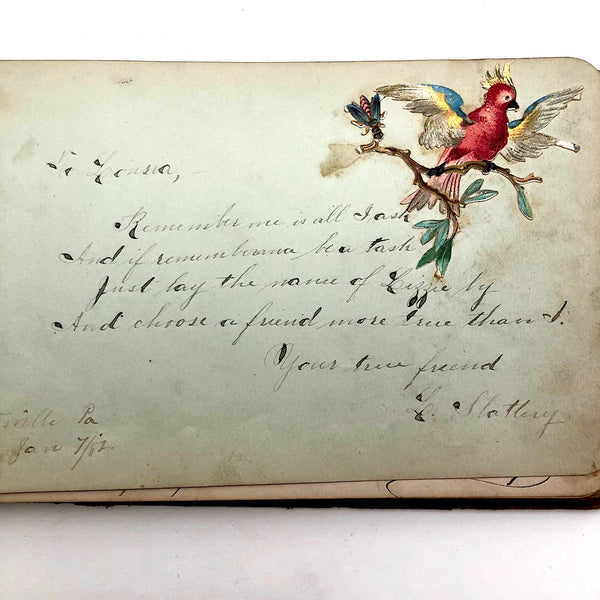 To Lousia,
Remember me is all I ask
And if rememberana be a task
Just lay the name of Lizzie by
And choose a friend more true than I.
Your true friend
L. Slattery.
ville Pa
Jan 7/82.